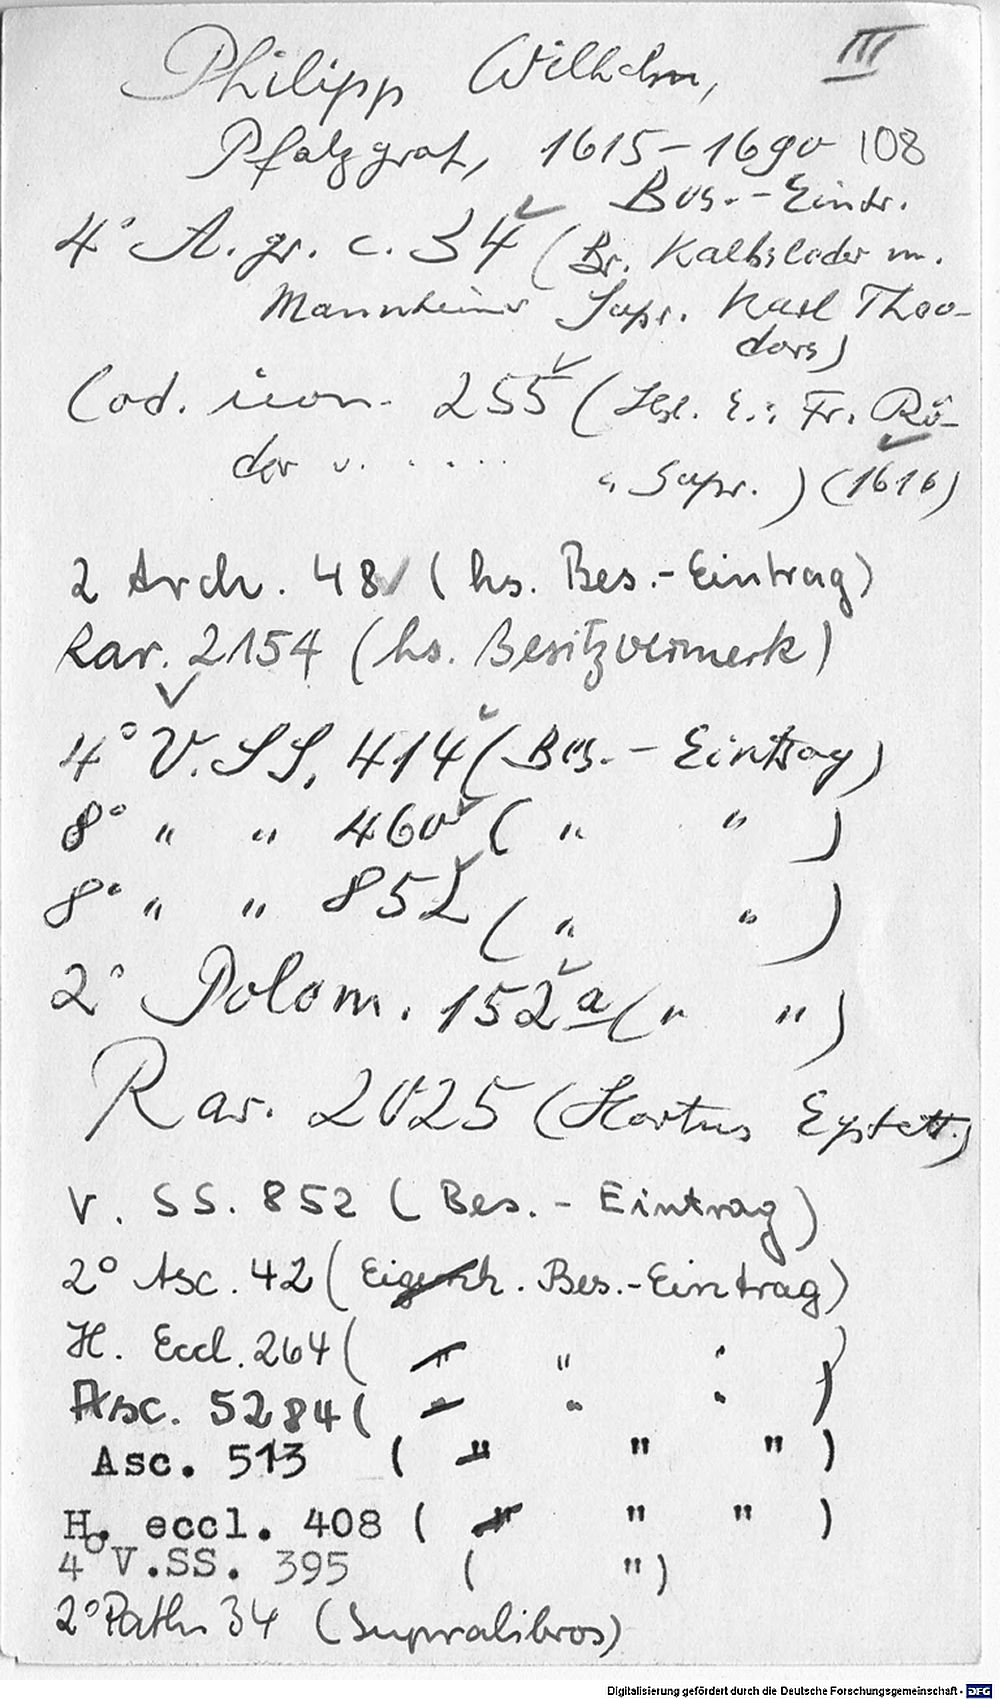 Philipp Wilhelm, III
Pfalzgraf, 1615-1690 108
Bes.-Eintr.
4° A. gr. c. 34 (Br. Kalbsleder m.
Mannheimer Supr. Karl Theo-
dors)
Cod. icon. 255 ( E.: Fr. Rö-
der u. . . . . .
" Supr.) (1616)
2 Arch. 48 (hs. Bes.-Eintrag)
Rar. 2154 (hs. Besitzvermerk)
4° V. SS. 414 (Bes.-Eintrag)
8° " " 460 ( " " )
8° " " 852 ( " " )
2° Polem. 152 a ( " " )
Rar. 2025 (Hortus Eystett.)
V. SS. 852 (Bes.-Eintrag)
2° Asc. 42 (Eigenh. Bes.-Eintrag)
H. Eccl. 264 ( " " " )
Asc. 5284 ( " " " )
Asc. 513 ( " " " )
H. eccl. 408 ( " " " )
4° V.SS. 395 ( ")
2° Path. 34 (Supralibros)
Digitalisierung gefördert durch die Deutsche Forschungsgemeinschaft - DFG